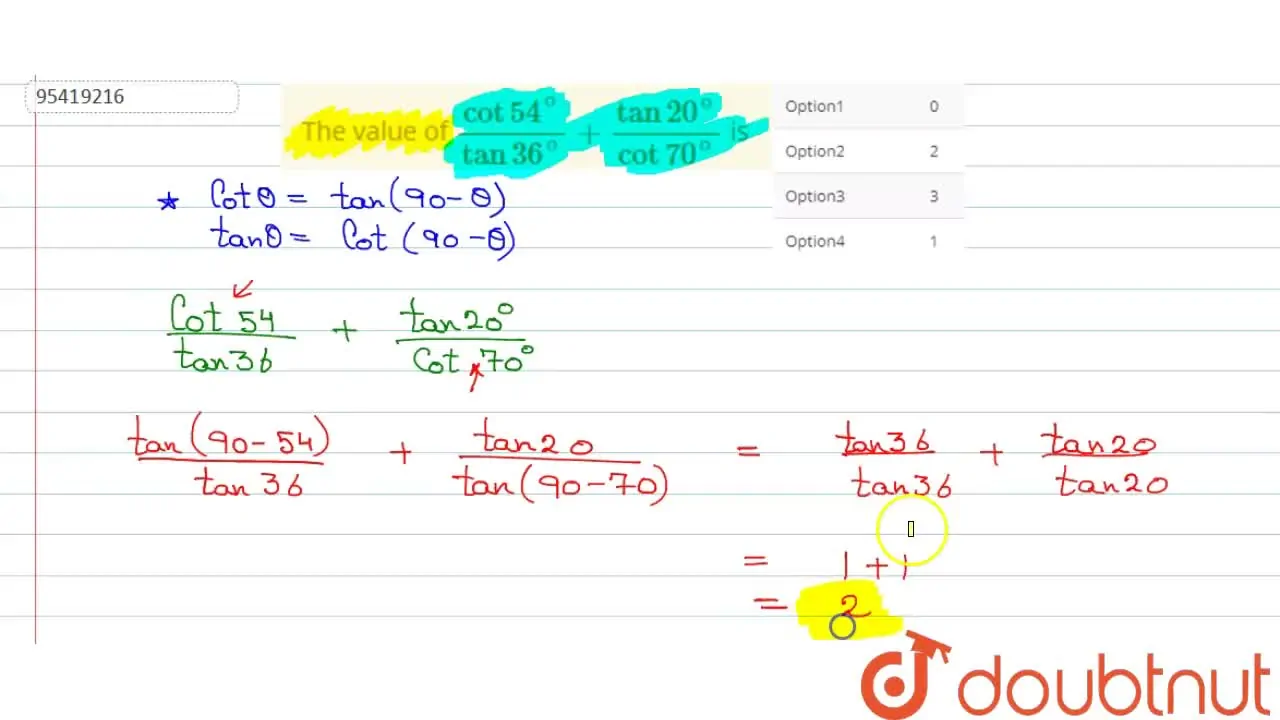 95419216
The value of cot 54° / tan 36° + tan 20° / cot 70° is
Option1 0
Option2 2
Option3 3
Option4 1
* Cotθ = tan(90-θ)
tanθ = Cot (90-θ)
Cot 54 / tan36 + tan20° / Cot 70°
tan(90-54) / tan 36 + tan20 / tan(90-70) = tan36 / tan36 + tan20 / tan20
= 1+1
= 2
doubtnut